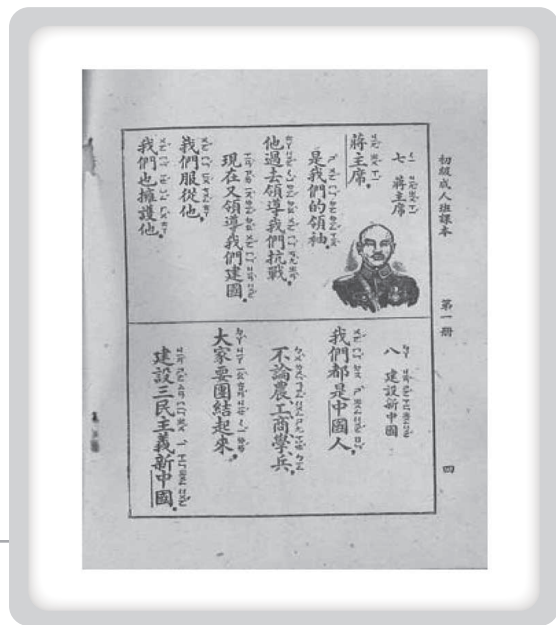 初級成人班課本
第一冊
四
七 蔣主席
蔣主席,
是我們的領袖,
他過去領導我們抗戰,
現在又領導我們建國,
我們服從他,
我們也擁護他。
八 建設新中國
我們都是中國人,
不論農工商學兵,
大家要團結起來,
建設三民主義新中國。